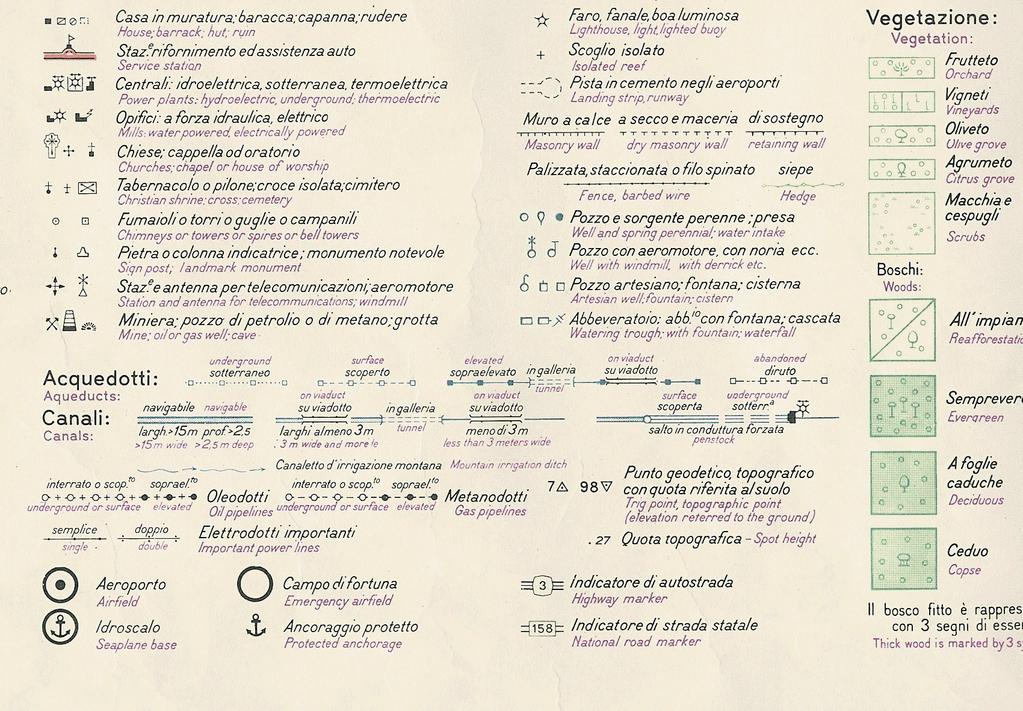 Casa in muratura; baracca; capanna; rudere
House; barrack; hut; ruin
Staz.e rifornimento ed assistenza auto
Service station
Centrali: idroelettrica, sotterranea, termoelettrica
Power plants: hydroelectric, underground; thermoelectric
Opifici: a forza idraulica, elettrico
Mills: water powered, electrically powered
Chiese; cappella od oratorio
Churches; chapel or house of worship
Tabernacolo o pilone; croce isolata; cimitero
Christian shrine; cross; cemetery
Fumaioli o torri o guglie o campanili
Chimneys or towers or spires or bell towers
Pietra o colonna indicatrice; monumento notevole
Sign post; landmark monument
o.
Staz.e e antenna per telecomunicazioni; aeromotore
Station and antenna for telecommunications; windmill
Miniera; pozzo di petrolio o di metano; grotta
Mine; oil or gas well; cave
Faro, fanale, boa luminosa
Lighthouse, light, lighted buoy
Scoglio isolato
Isolated reef
Pista in cemento negli aeroporti
Landing strip, runway
Muro a calce a secco e maceria di sostegno
Masonry wall dry masonry wall retaining wall
Palizzata, staccionata o filo spinato siepe
Fence, barbed wire Hedge
Pozzo e sorgente perenne; presa
Well and spring perennial; water intake
Pozzo con aeromotore, con noria ecc.
Well with windmill, with derrick etc.
Pozzo artesiano; fontana; cisterna
Artesian well; fountain; cistern
Abbeveratoio; abb.io con fontana; cascata
Watering trough; with fountain; waterfall
Vegetazione:
Vegetation:
Frutteto
Orchard
Vigneti
Vineyards
Oliveto
Olive grove
Agrumeto
Citrus grove
Macchia e
cespugli
Scrubs
Boschi:
Woods:
All'impian
Reafforestatio
Sempreverd
Evergreen
A foglie
caduche
Deciduous
Ceduo
Copse
Il bosco fitto è rappres
con 3 segni di esse
Thick wood is marked by 3 s
underground surface elevated on viaduct abandoned
Acquedotti: sotterraneo scoperto sopraelevato in galleria su viadotto diruto
Aqueducts: on viaduct on viaduct tunnel surface underground
navigabile navigabile su viadotto in galleria su viadotto scoperta sotterr.a
Canali: largh.>15m prof>2,5 larghi almeno 3m tunnel meno di 3m salto in conduttura forzata
Canals: >15m wide >2,5m deep 3m wide and more less than 3 meters wide penstock
Canaletto d'irrigazione montana Mountain irrigation ditch
interrato o scop.to soprael.to Oleodotti interrato o scop.to soprael.to Metanodotti
underground or surface elevated Oil pipelines underground or surface elevated Gas pipelines
semplice doppio Elettrodotti importanti
single double Important power lines
7 98 Punto geodetico, topografico
con quota riferita al suolo
Trig point, topographic point
(elevation referred to the ground)
.27 Quota topografica - Spot height
Aeroporto
Airfield
Campo di fortuna
Emergency airfield
3 Indicatore di autostrada
Highway marker
Idroscalo
Seaplane base
Ancoraggio protetto
Protected anchorage
158 Indicatore di strada statale
National road marker